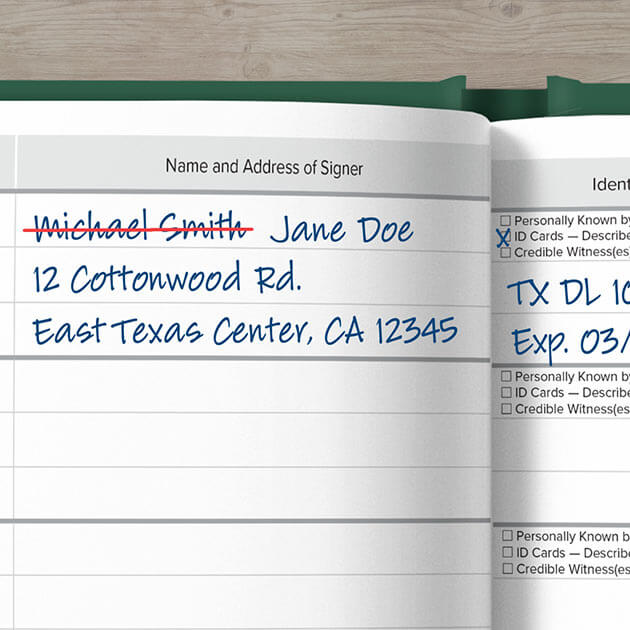 Name and Address of Signer
Michael Smith Jane Doe
12 Cottonwood Rd.
East Texas Center, CA 12345
Ident
☐ Personally Known by
☒ ID Cards — Describe
☐ Credible Witness(es
TX DL 10
Exp. 03/
☐ Personally Known by
☐ ID Cards — Describe
☐ Credible Witness(es
☐ Personally Known by
☐ ID Cards — Describe
☐ Credible Witness(es